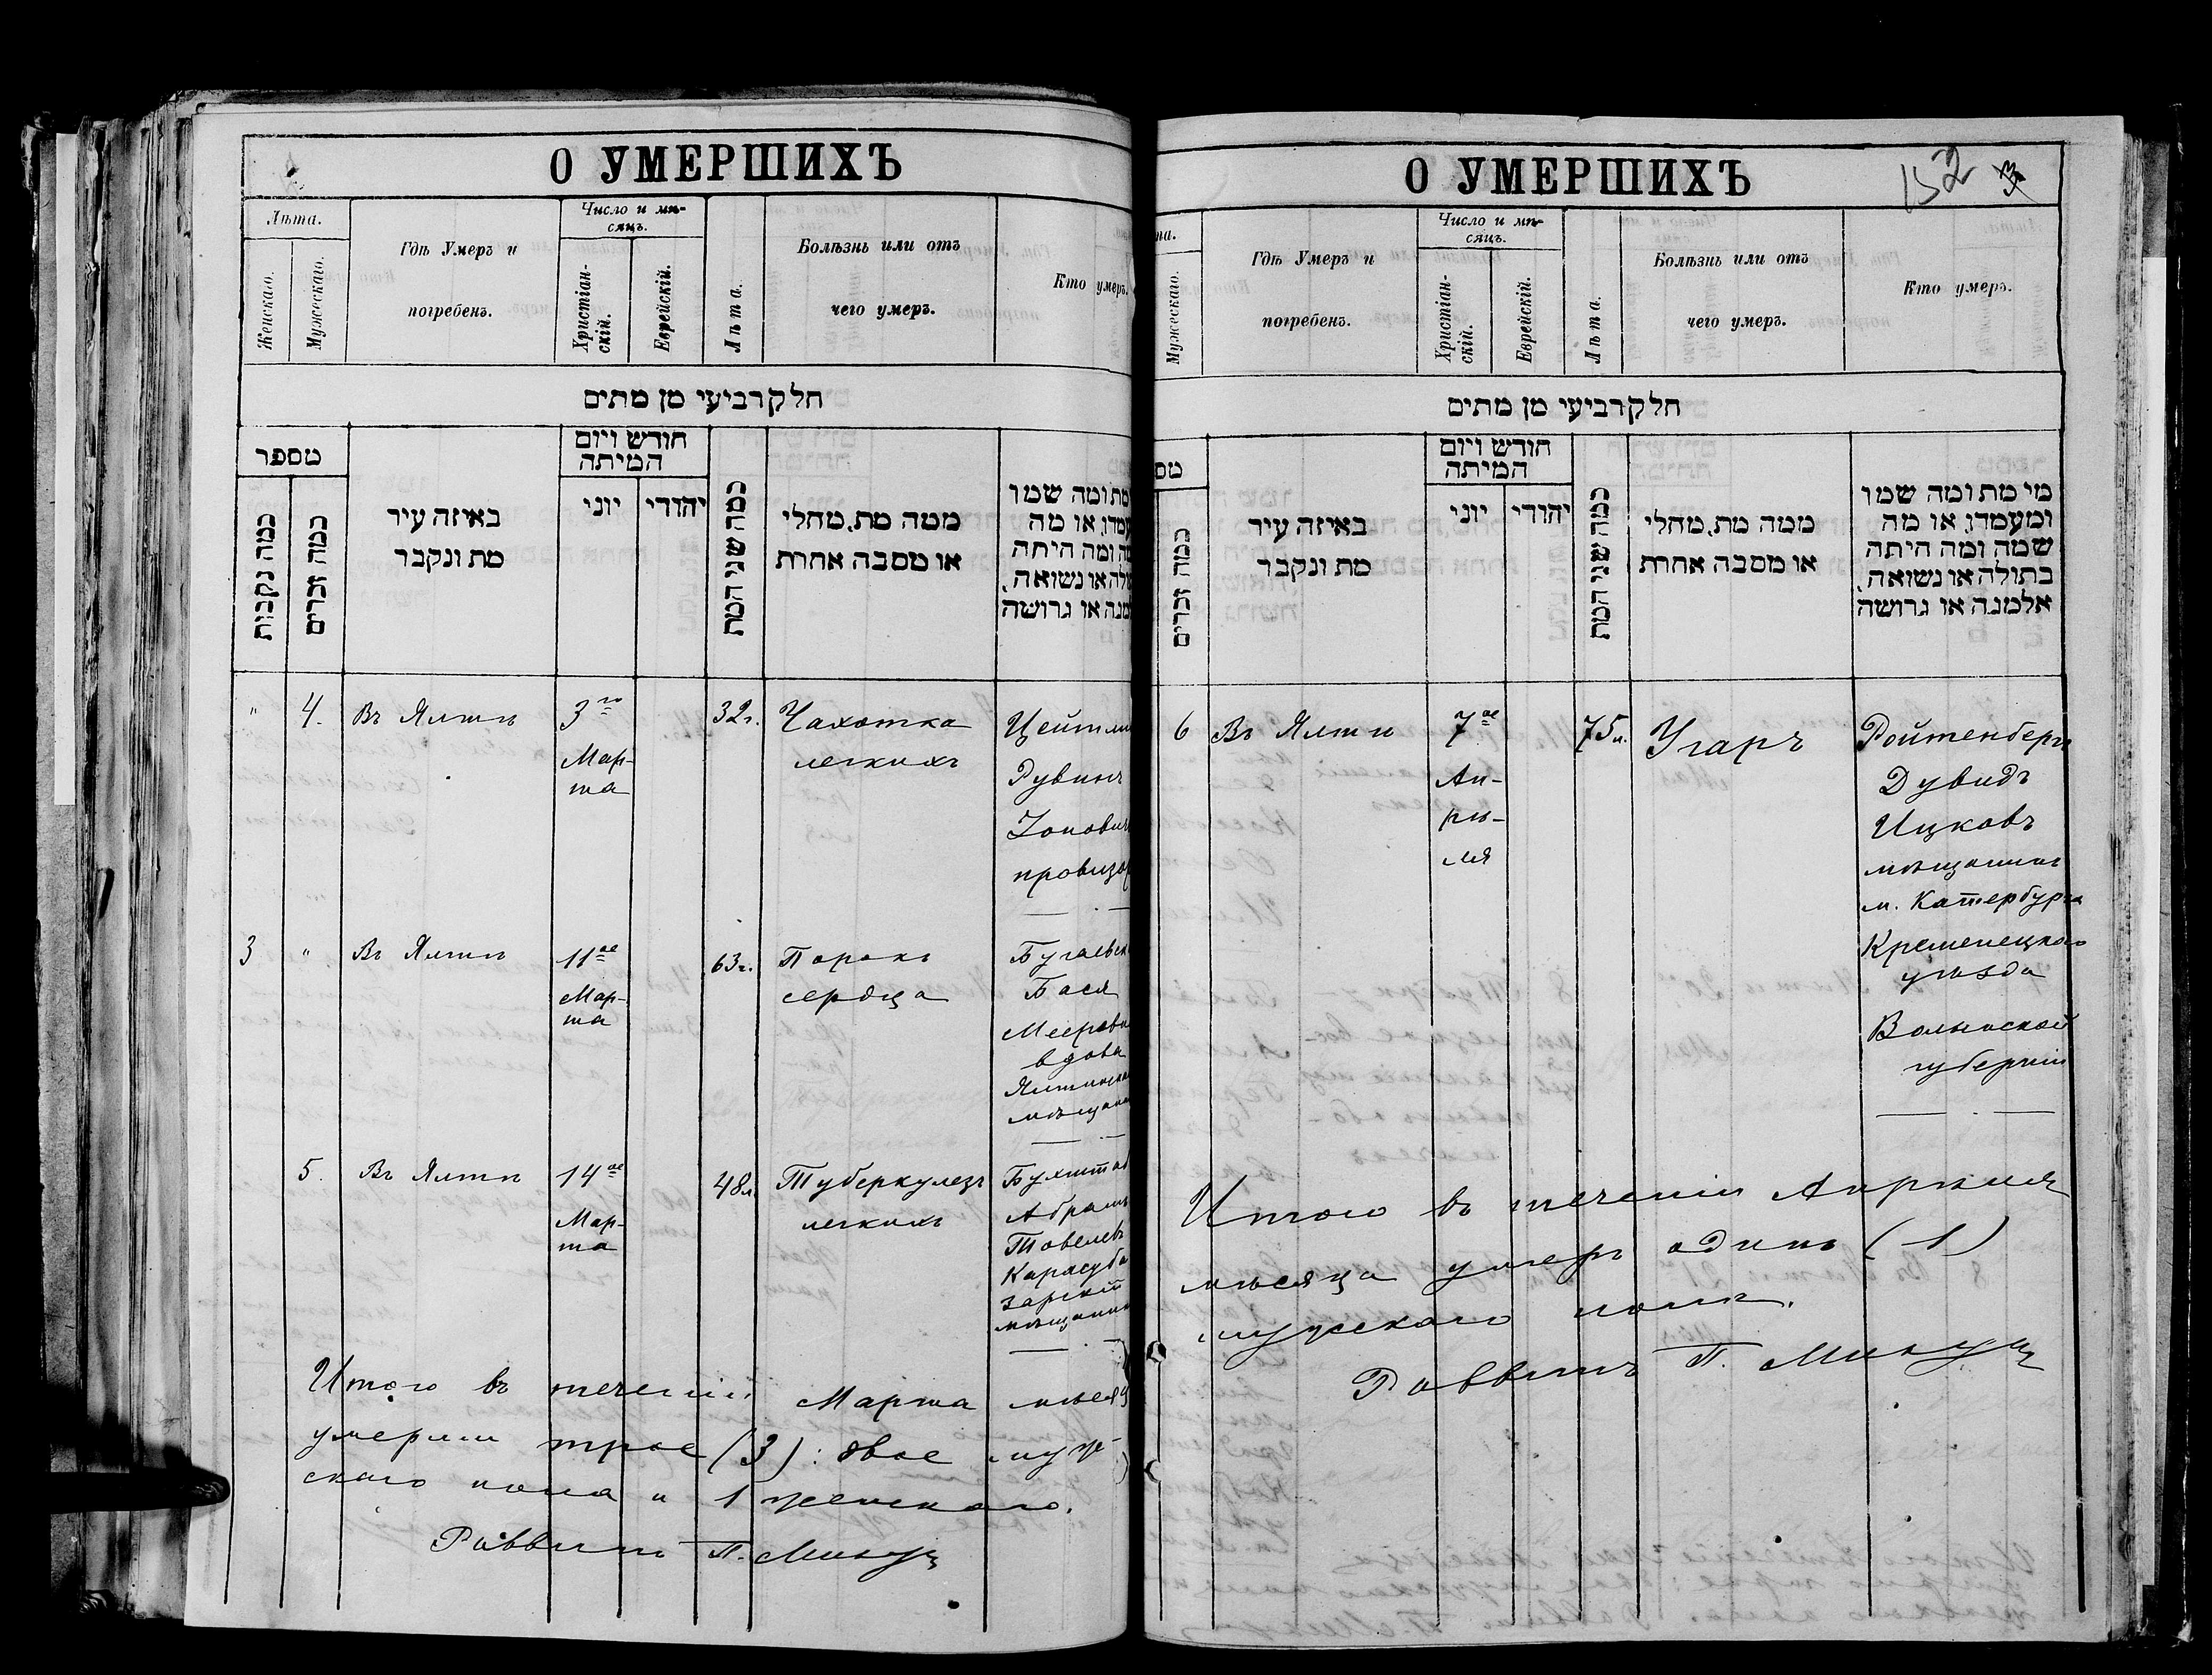 О УМЕРШИХЪ
Лѣта.
Женскаго.
Мужескаго.
Гдѣ Умеръ и
погребенъ.
Число и мѣ-
сяцъ.
Христіан-
скій.
Еврейскій.
Лѣта.
Болѣзнь или отъ
чего умеръ.
Кто умеръ.
חלק רביעי מן מתים
מספר
כמה נקבות
כמה זכרים
באיזה עיר
מת ונקבר
חודש ויום
המיתה
יוני
יהודי
כמה שני המת
ממה מת, מחלי
או מסבה אחרת
מת ומה שמו
או מה
ומה היתה
או נשואה,
או גרושה
" 4. Въ Ялтѣ 3го Мар-
та
32 г. Чахотка
легкихъ
Цейтли
Рувинъ
провизор
3 " Въ Ялтѣ 11ое Мар-
та
63 г. Порокъ
сердца
Бася
вдова
5. Въ Ялтѣ 14ое Мар-
та
48 л. Туберкулезъ
легкихъ
Абрамъ
Товелевъ
Карасуба
зарскій
мѣщанин
Итого въ теченіи Марта мѣсяц
умерли трое (3): двое муже-
скаго пола и 1 женскаго.
Раввинъ П.
О УМЕРШИХЪ
152
3
та.
Мужескаго.
Гдѣ Умеръ и
погребенъ.
Число и мѣ-
сяцъ.
Христіан-
скій.
Еврейскій.
Лѣта.
Болѣзнь или отъ
чего умеръ.
Кто умеръ.
חלק רביעי מן מתים
מס
כמה זכרים
באיזה עיר
מת ונקבר
חודש ויום
המיתה
יוני
יהודי
כמה שני המת
ממה מת, מחלי
או מסבה אחרת
מי מת ומה שמו
ומעמדו, או מה
שמה ומה היתה
בתולה או נשואה,
אלמנה או גרושה
6 Въ Ялтѣ 7ое Ап-
рѣ-
ля
75 л. Угаръ
Ройтенбергъ
Дувидъ
Ицковъ
мѣщанинъ
м. Катербурга
Кременецкаго
уѣзда
Волынской
губерніи
Итого въ теченіи Апрѣля
мѣсяца умеръ одинъ (1)
мужскаго пола.
Раввинъ П.